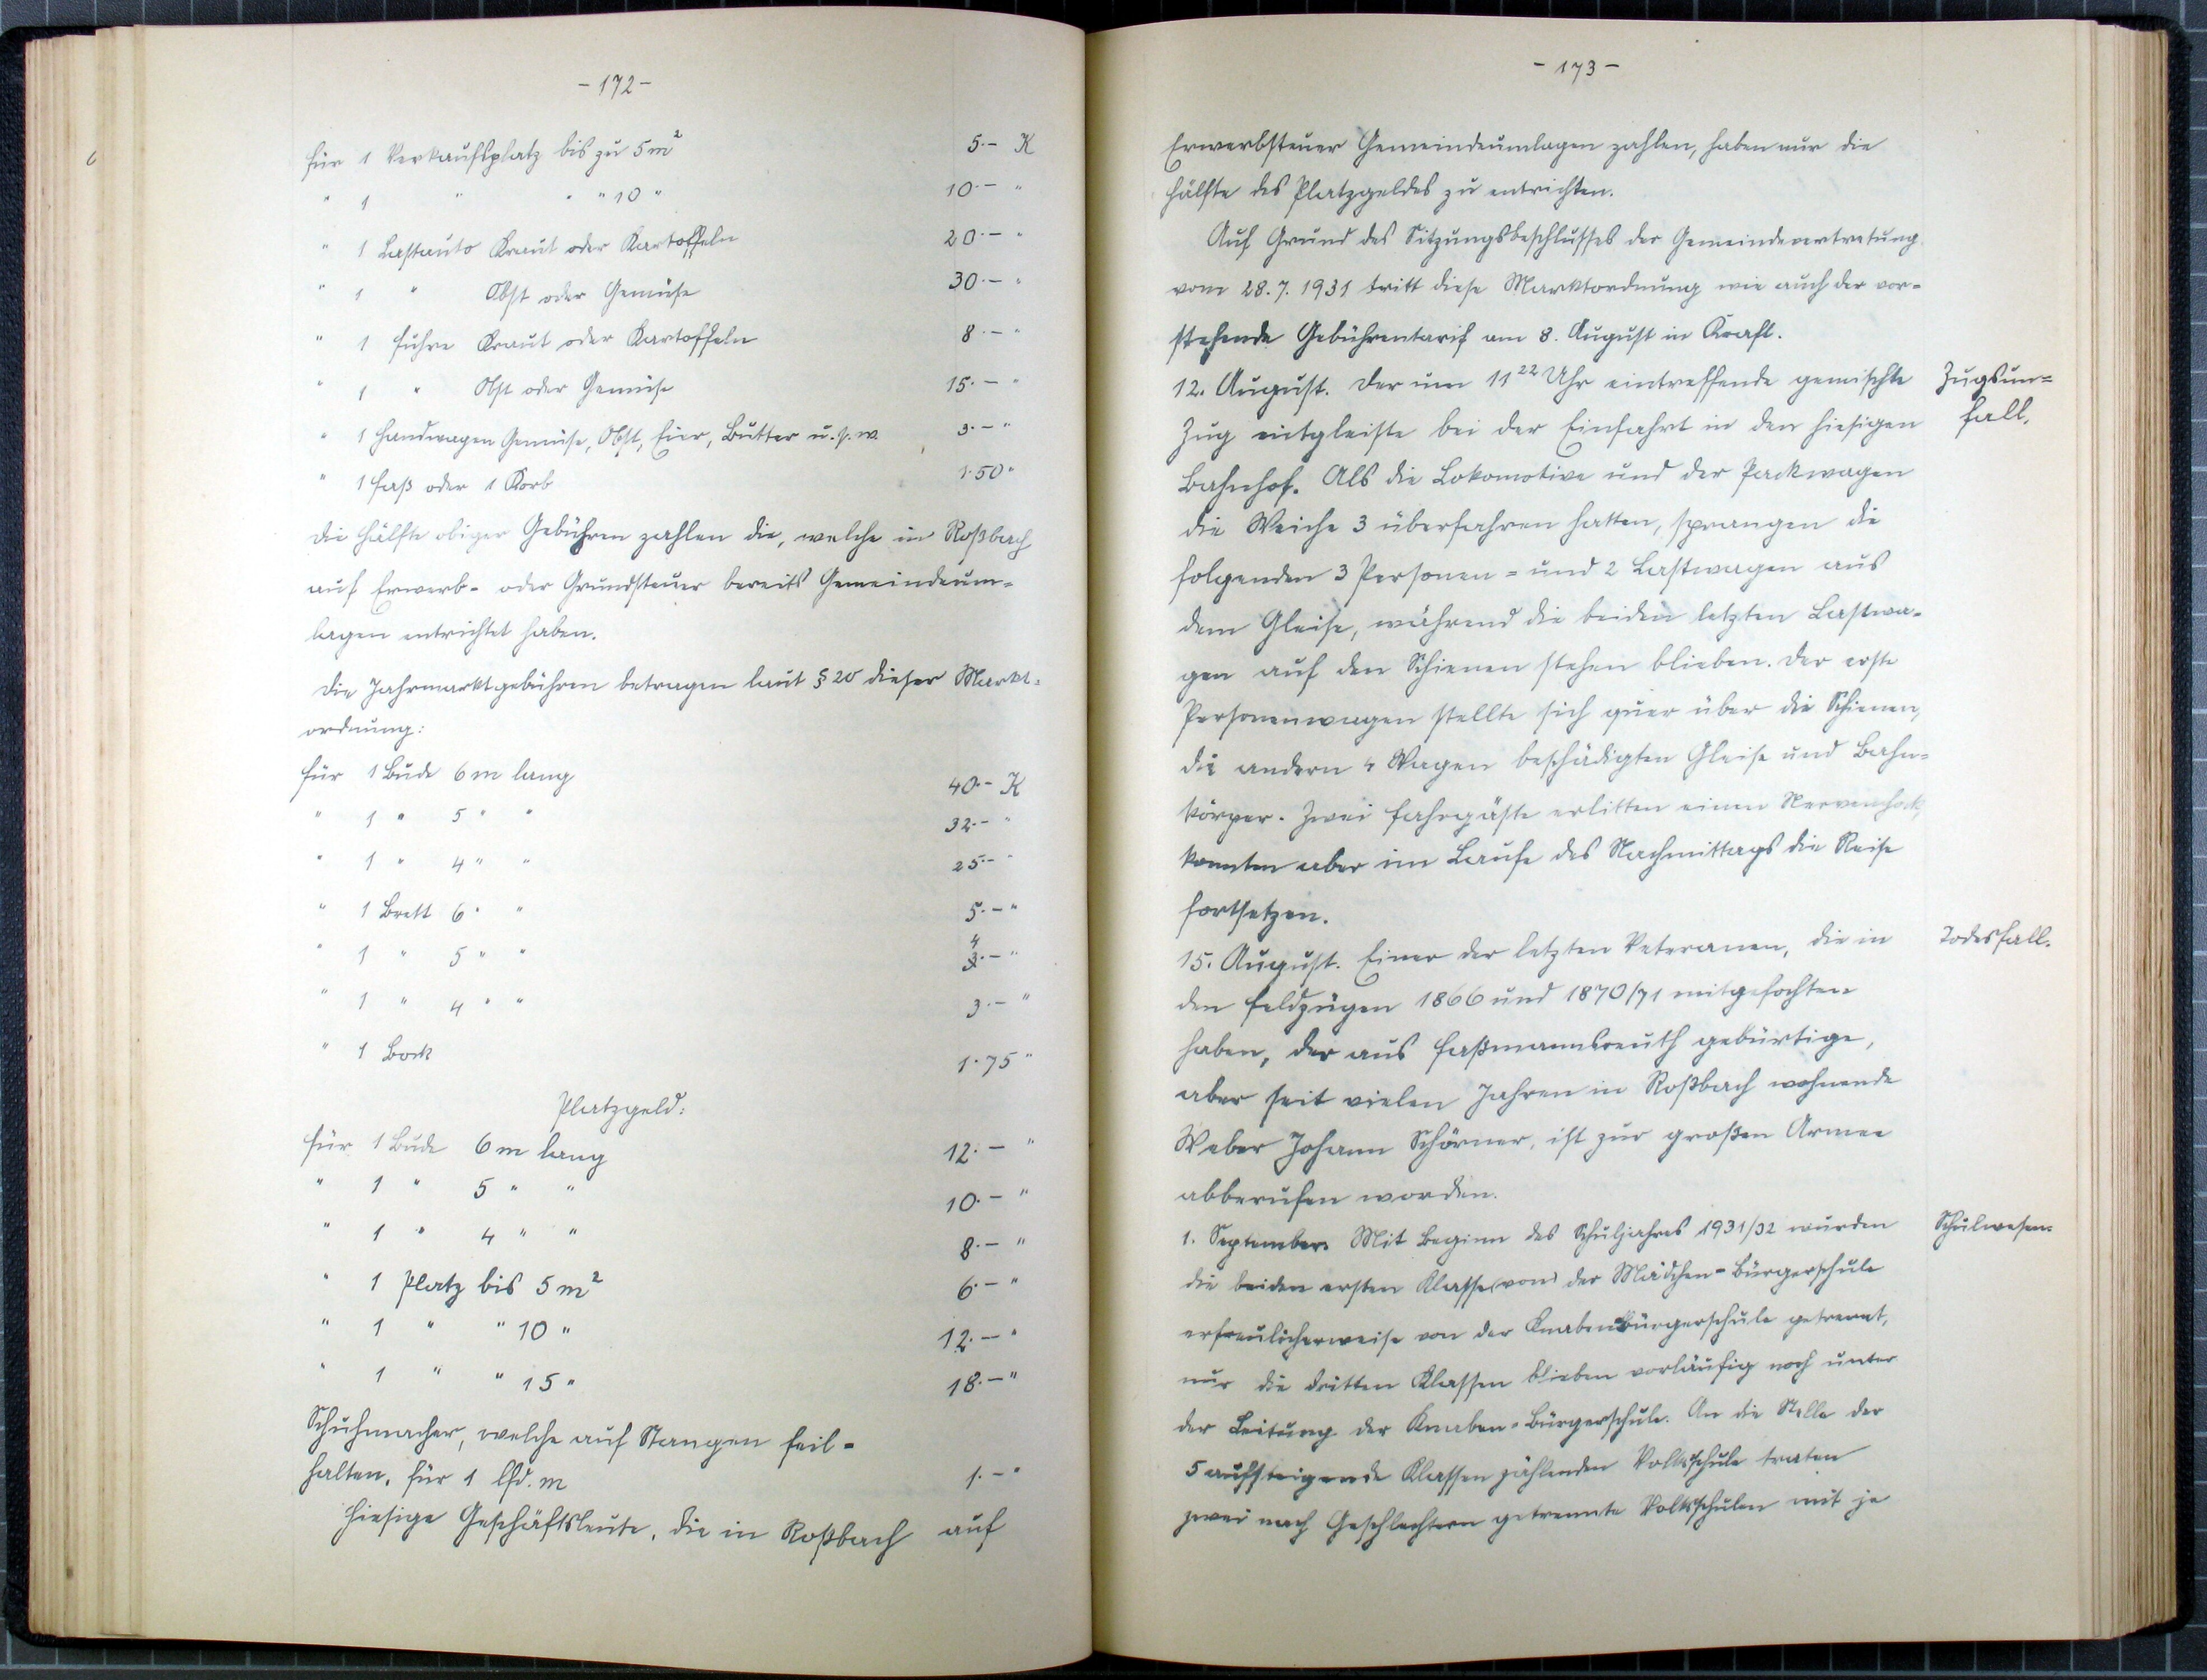 - 172 -
für 1 Verkaufsplatz bis zu 5 m² 5.- K
" 1 " " " 10 " 10.- "
" 1 Lastauto Kraut oder Kartoffeln 20.- "
" 1 " Obst oder Gemüse 30.- "
" 1 Fuhre Kraut oder Kartoffeln 8.- "
" 1 " Obst oder Gemüse 15.- "
" 1 Handwagen Gemüse, Obst, Eier, Butter u.s.w. 3.- "
" 1 Faß oder 1 Korb 1.50 "
Die Hälfte obiger Gebühren zahlen die, welche in Roßbach
auf Erwerb- oder Grundsteuer bereits Gemeindeum=
lagen entrichtet haben.
Die Jahrmarktgebühren betragen laut § 20 dieser Markt=
ordnung:
für 1 Bude 6 m lang 40.- K
" 1 " 5 " " 32.- "
" 1 " 4 " " 25.- "
" 1 Brett 6 " " 5.- "
" 1 " 5 " " 4.- "
" 1 " 4 " " 3.- "
" 1 Bock 1.75 "
Platzgeld:
für 1 Bude 6 m lang 12.- "
" 1 " 5 " " 10.- "
" 1 " 4 " " 8.- "
" 1 Platz bis 5 m² 6.- "
" 1 " " 10 " 12.- "
" 1 " " 15 " 18.- "
Schuhmacher, welche auf Stangen feil=
halten, für 1 lfd. m 1.- "
Hiesige Geschäftsleute, die in Roßbach auf
- 173 -
Erwerbsteuer Gemeindeumlagen zahlen, haben nur die
Hälfte des Platzgeldes zu entrichten.
Auf Grund des Sitzungsbeschlusses der Gemeindevertretung
vom 28.7.1931 tritt diese Marktordnung wie auch der vor=
stehende Gebührentarif am 8. August in Kraft.
12. August. Der um 11²² Uhr eintreffende gemischte Zugsun=
Zug entgleiste bei der Einfahrt in den hiesigen fall.
Bahnhof. Als die Lokomotive und der Packwagen
die Weiche 3 überfahren hatten, sprangen die
folgenden 3 Personen= und 2 Lastwagen aus
dem Gleise, während die beiden letzten Lastwa=
gen auf den Schienen stehen blieben. Der erste
Personenwagen stellte sich quer über die Schienen,
die andern 4 Wagen beschädigten Gleise und Bahn=
körper. Zwei Fahrgäste erlitten einen Nervenchock,
konnten aber im Laufe des Nachmittags die Reise
fortsetzen.
15. August. Einer der letzten Veteranen, die in Todesfall.
den Feldzügen 1866 und 1870/71 mitgefochten
haben, der aus Faßmannsreuth gebürtige,
aber seit vielen Jahren in Roßbach wohnende
Weber Johann Schörner, ist zur großen Armee
abberufen worden.
1. September. Mit Beginn des Schuljahres 1931/32 wurden Schulwesen.
die beiden ersten Klassen von der Mädchen=Bürgerschule
erfreulicherweise von der Knabenbürgerschule getrennt,
nur die dritten Klassen blieben vorläufig noch unter
der Leitung der Knaben=Bürgerschule. An die Stelle der
5 aufsteigende Klassen zählenden Volksschule traten
zwei nach Geschlechtern getrennte Volksschulen mit je